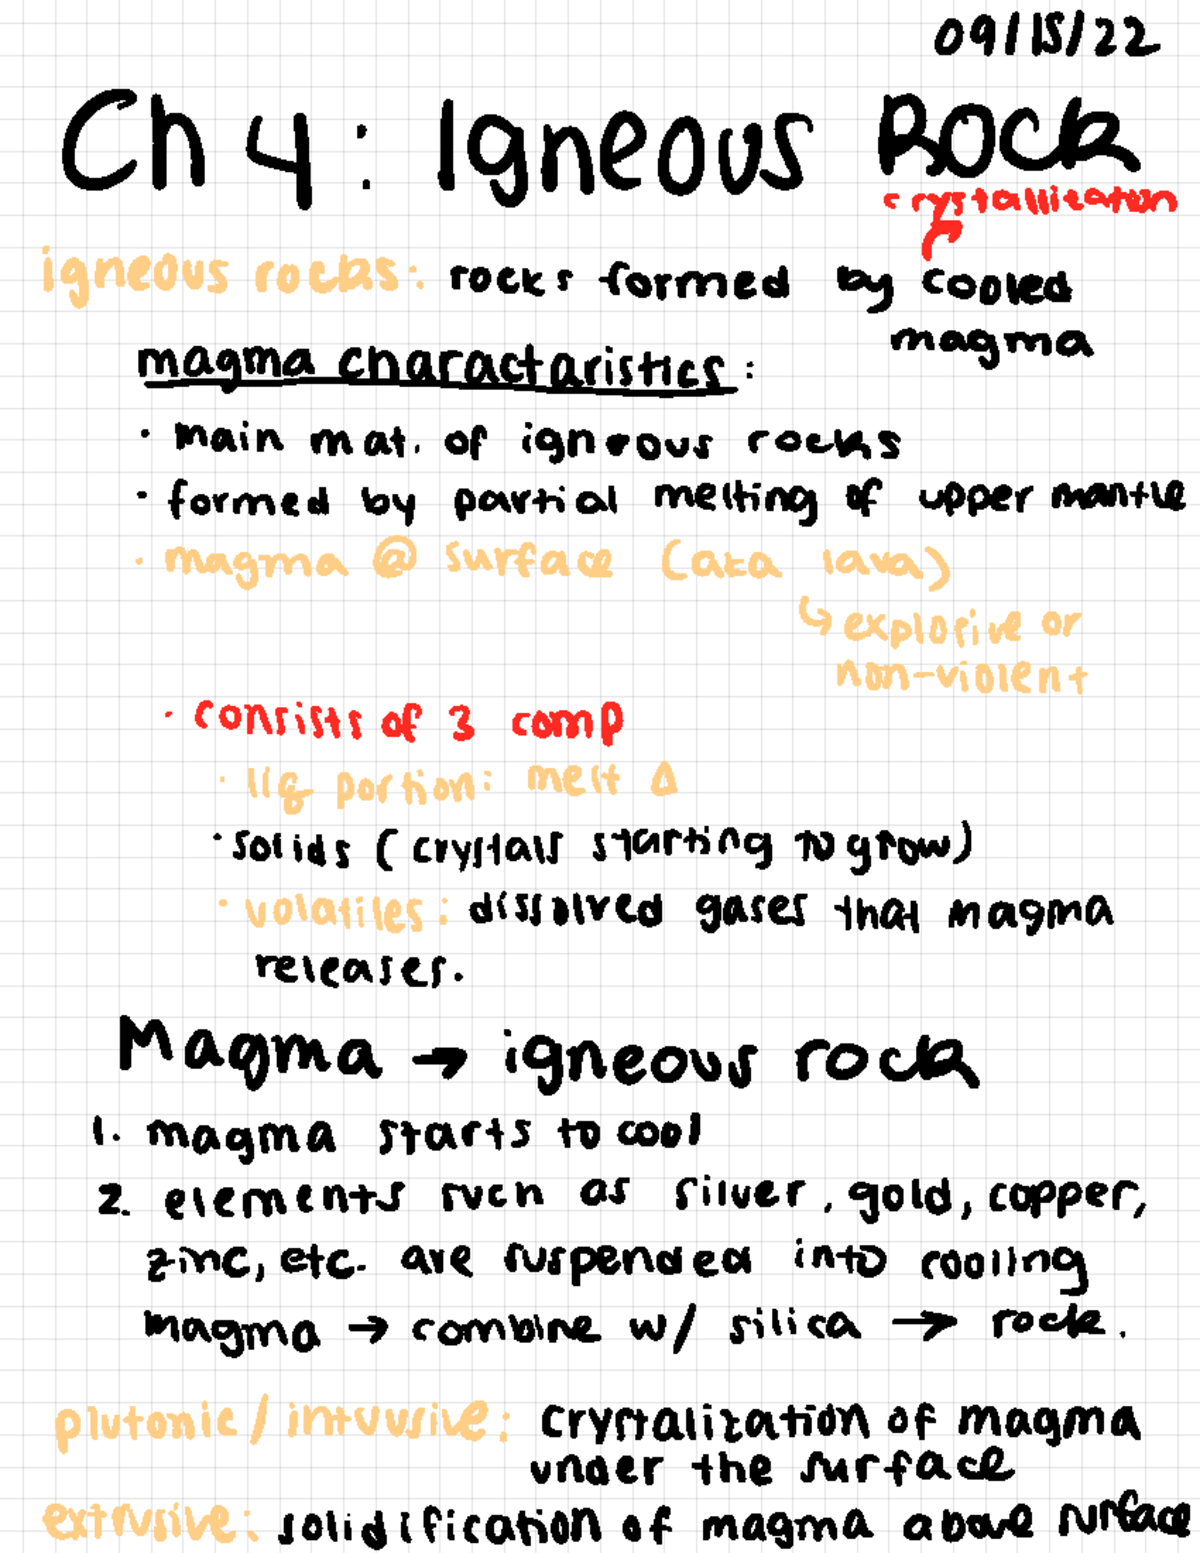 09/15/22
Ch 4: Igneous Rock
crystallization
igneous rocks: rocks formed by cooled
magma
magma charactaristics:
· main mat. of igneous rocks
· formed by partial melting of upper mantle
· magma @ surface (aka lava)
↳ explosive or
non-violent
· consists of 3 comp
· liq portion: melt Δ
· solids (crystals starting to grow)
· volatiles: dissolved gases that magma
releases.
Magma → igneous rock
1. magma starts to cool
2. elements such as silver, gold, copper,
zinc, etc. are suspended into cooling
magma → combine w/ silica → rock.
plutonic/intrusive: crystalization of magma
under the surface
extrusive: solidification of magma above surface